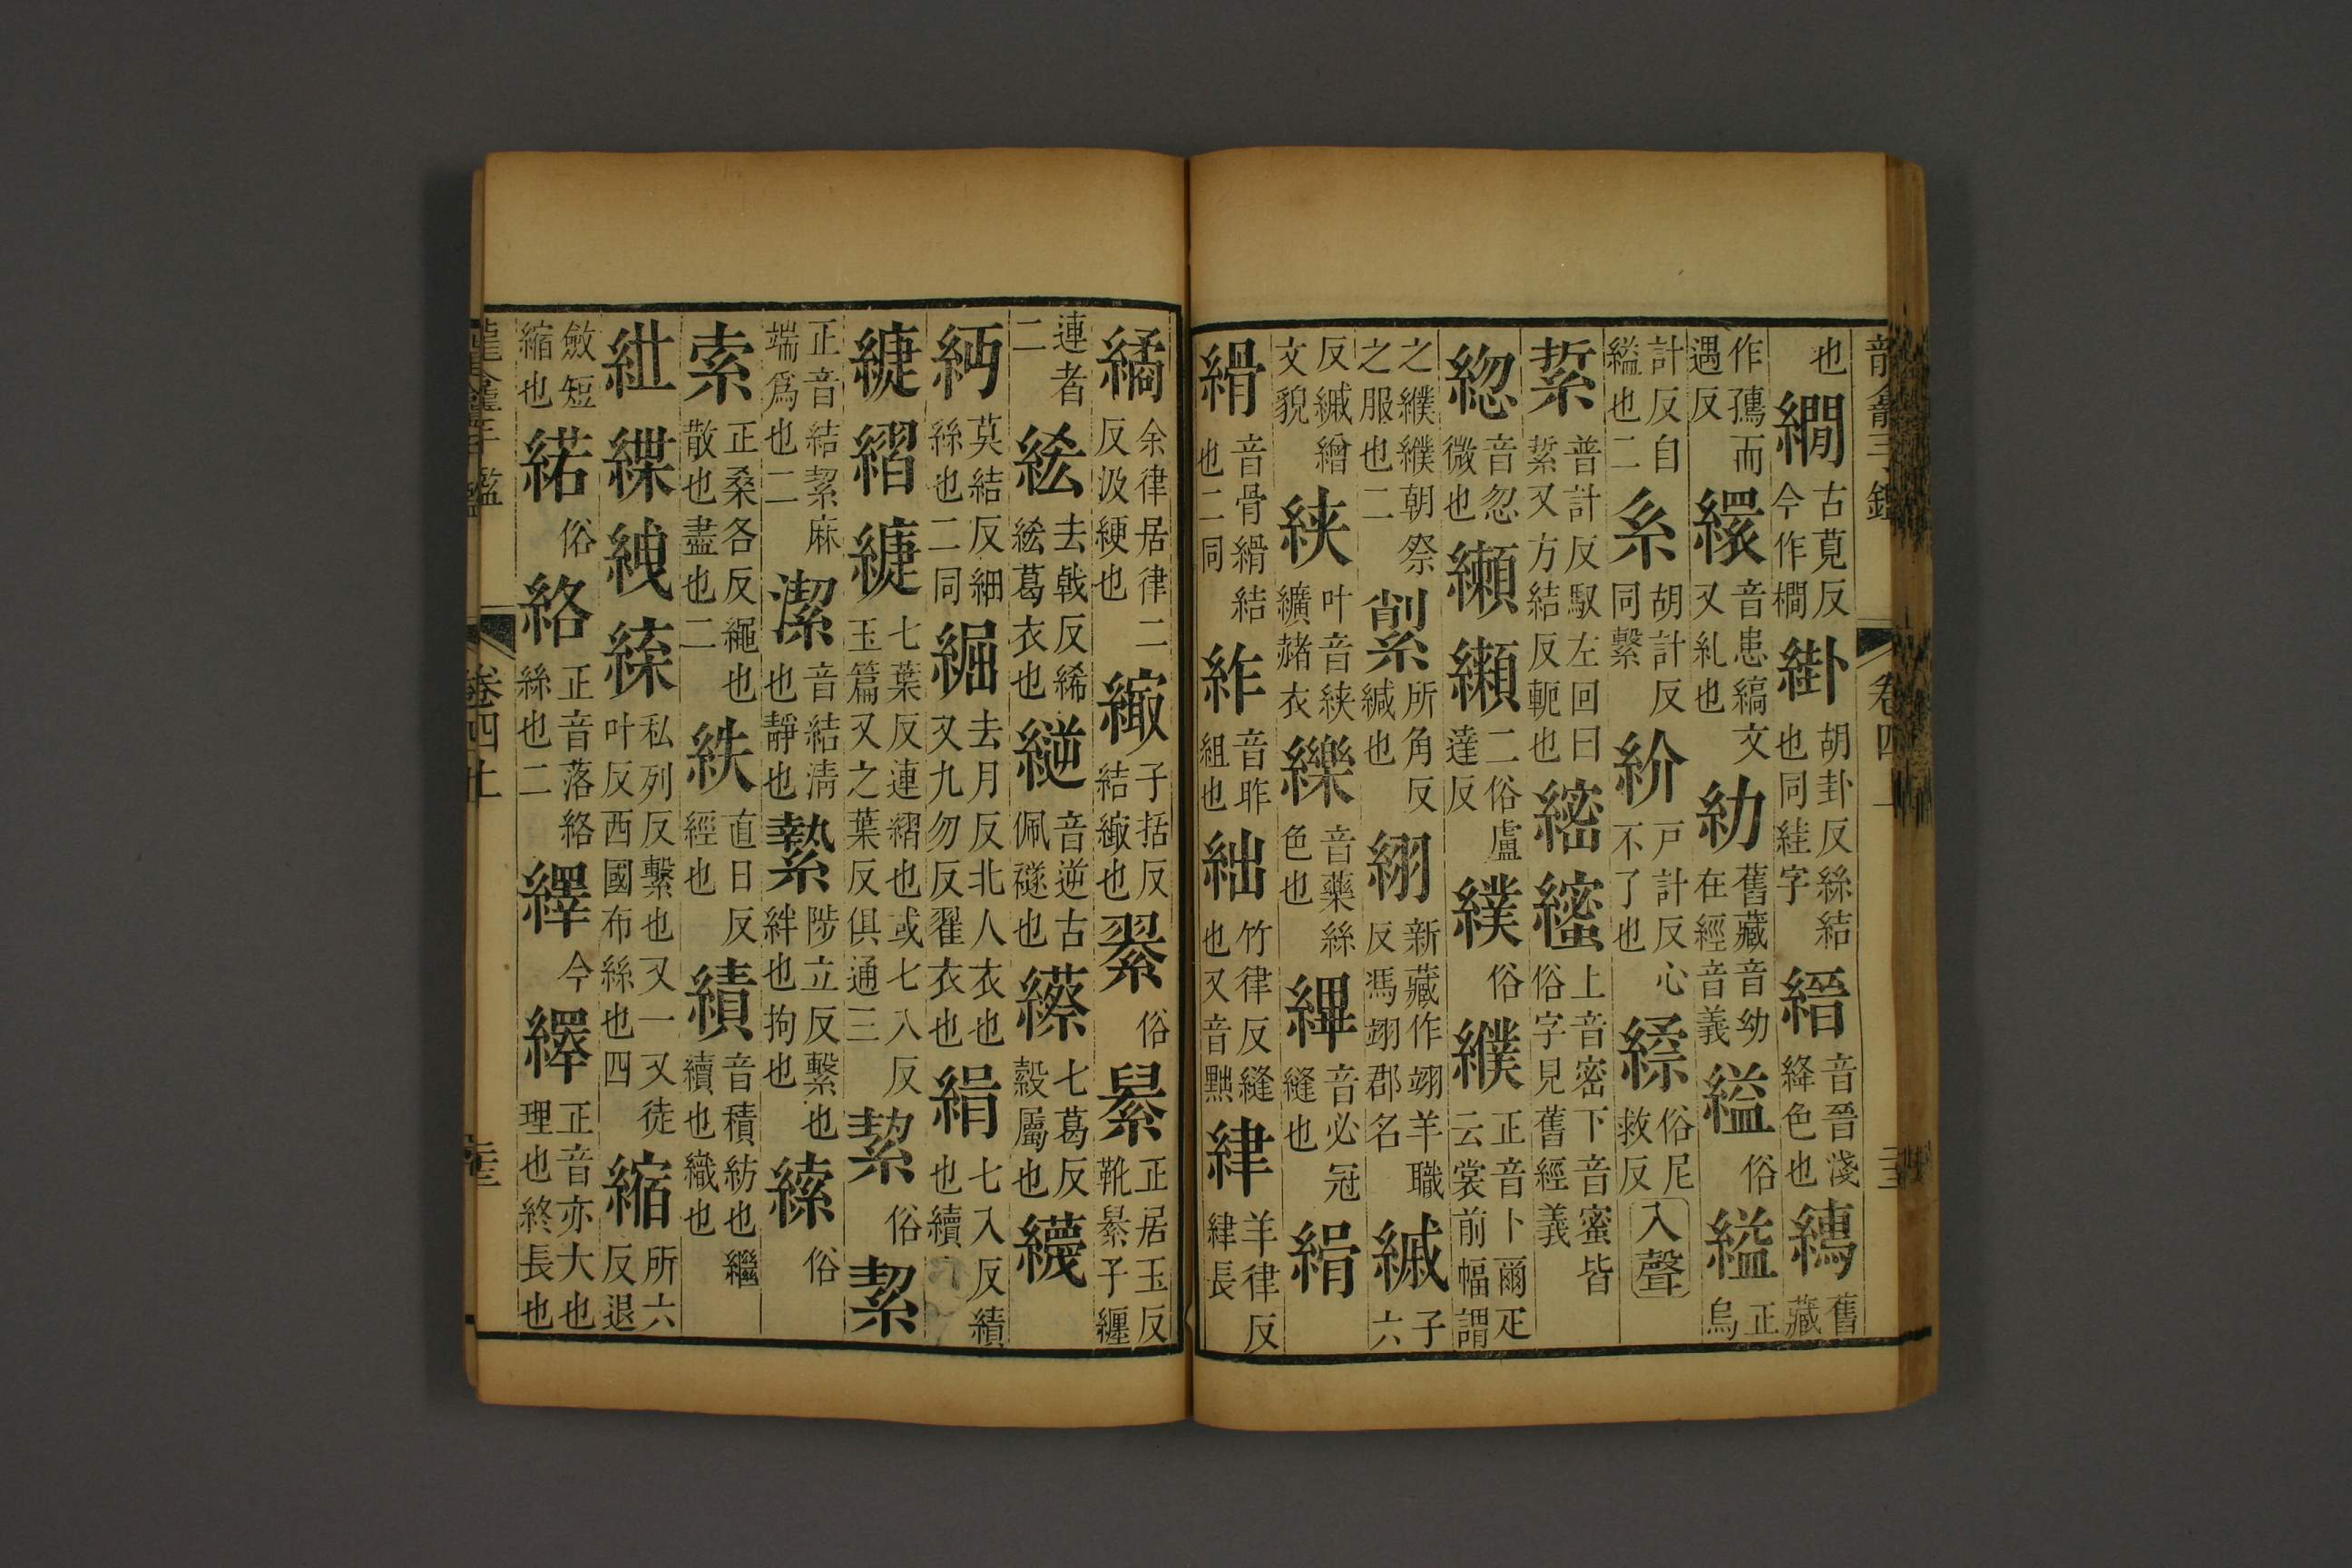 龍龕手鑑 卷四上
也繝古莧反今作櫚絓胡卦反絲結也同絓字縉音晉淺絳色也䌋舊藏
作䌋而遇反繯音患縞文又糺也㓜舊藏音幼在經音義縊俗縊正烏
計反自縊也二糸胡計反同繫紒戶計反心不了也䋴俗尼救反入聲
䋢普計反馭左回曰䋢又方結反軛也䌏䌩上音密下音蜜皆俗字見舊經義
緫音忽微也䌨䌨二俗盧達反纀俗纀正音卜爾疋云裳前幅謂
之纀纀朝祭之服也二䋷所角反緘也䋚新藏作翊羊職反馮翊郡名緎子六
反緎繒文貌綊叶音綊纊赭衣纅音藥絲色也縪音必冠縫也緝
縎音骨縎結也二同䋏音昨組也絀竹律反縫也又音黜繂羊律反繂長
繘余律居律二反汲綆也繓子括反結繓也䋭俗暴正居玉反靴暴子纒
連者二綌去戟反絺綌葛衣也縌音逆古佩襚也䌨七葛反縠屬也襪
䋛莫結反細絲也二同䋿去月反北人衣也又九勿反翟衣也緝七入反績也續
緁褶緁七葉反連褶也或七入反玉篇又之葉反俱通三絜俗絜
正音結絜麻端爲也二潔音結清也靜也縶陟立反繫也絆也拘也縤俗
索正桑各反繩也散也盡也二紩直日反經也績音積紡也繼續也織也
紲緤絏䋤私列反繫也又一又徒叶反西國布絲也四縮所六反退
斂短縮也䋤俗絡正音落絡絲也二繹今繹正音亦大也理也終長也
龍龕手鑑 卷四上